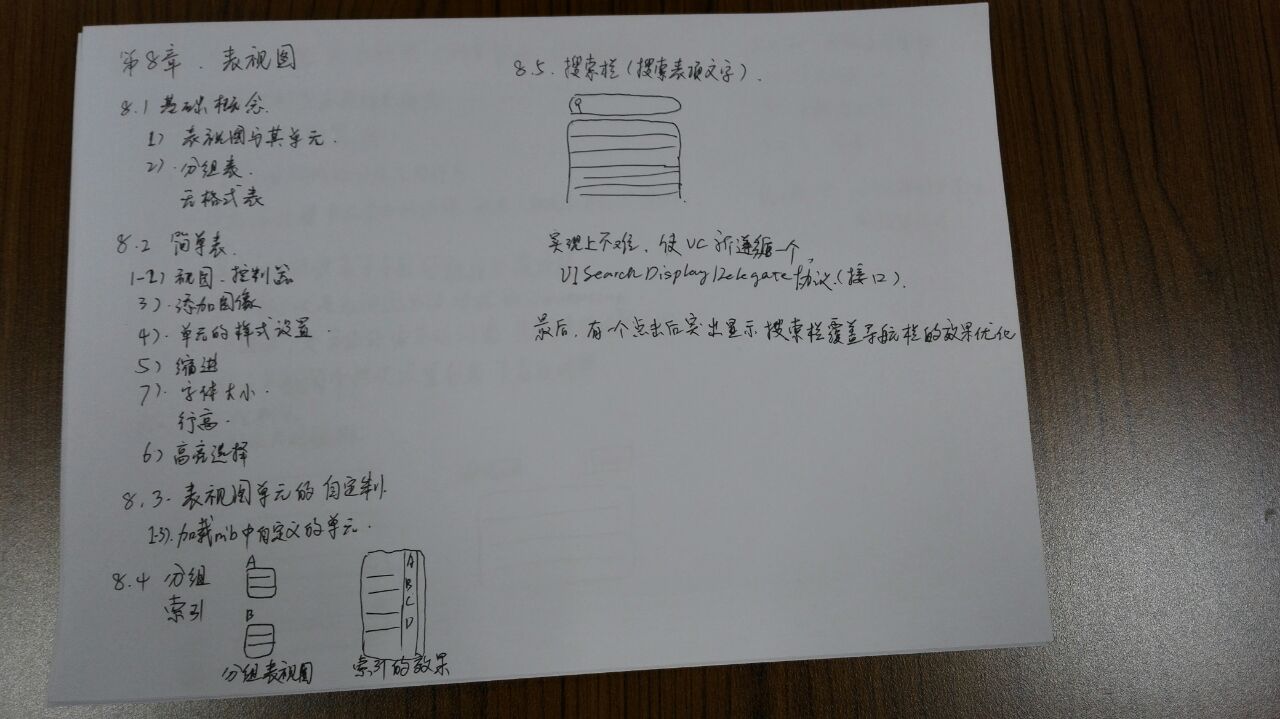 第8章. 表视图
8.1 基础概念.
1) 表视图与其单元.
2). 分组表.
无格式表
8.2 简单表.
1-2) 视图、控制器
3). 添加图像
4). 单元的样式设置.
5) 缩进
7). 字体大小.
行高.
6) 高亮选择
8.3. 表视图单元的自定制.
1-3). 加载nib中自定义的单元.
8.4 分组
索引
A
B
分组表视图
A
B
C
D
索引的效果
8.5. 搜索栏(搜索表项文字).
实现上不难, 使VC 一个
UISearchDisplayDelegate 协议.(接口).
最后, 有个点击后突出显示 搜索栏覆盖导航栏的效果优化